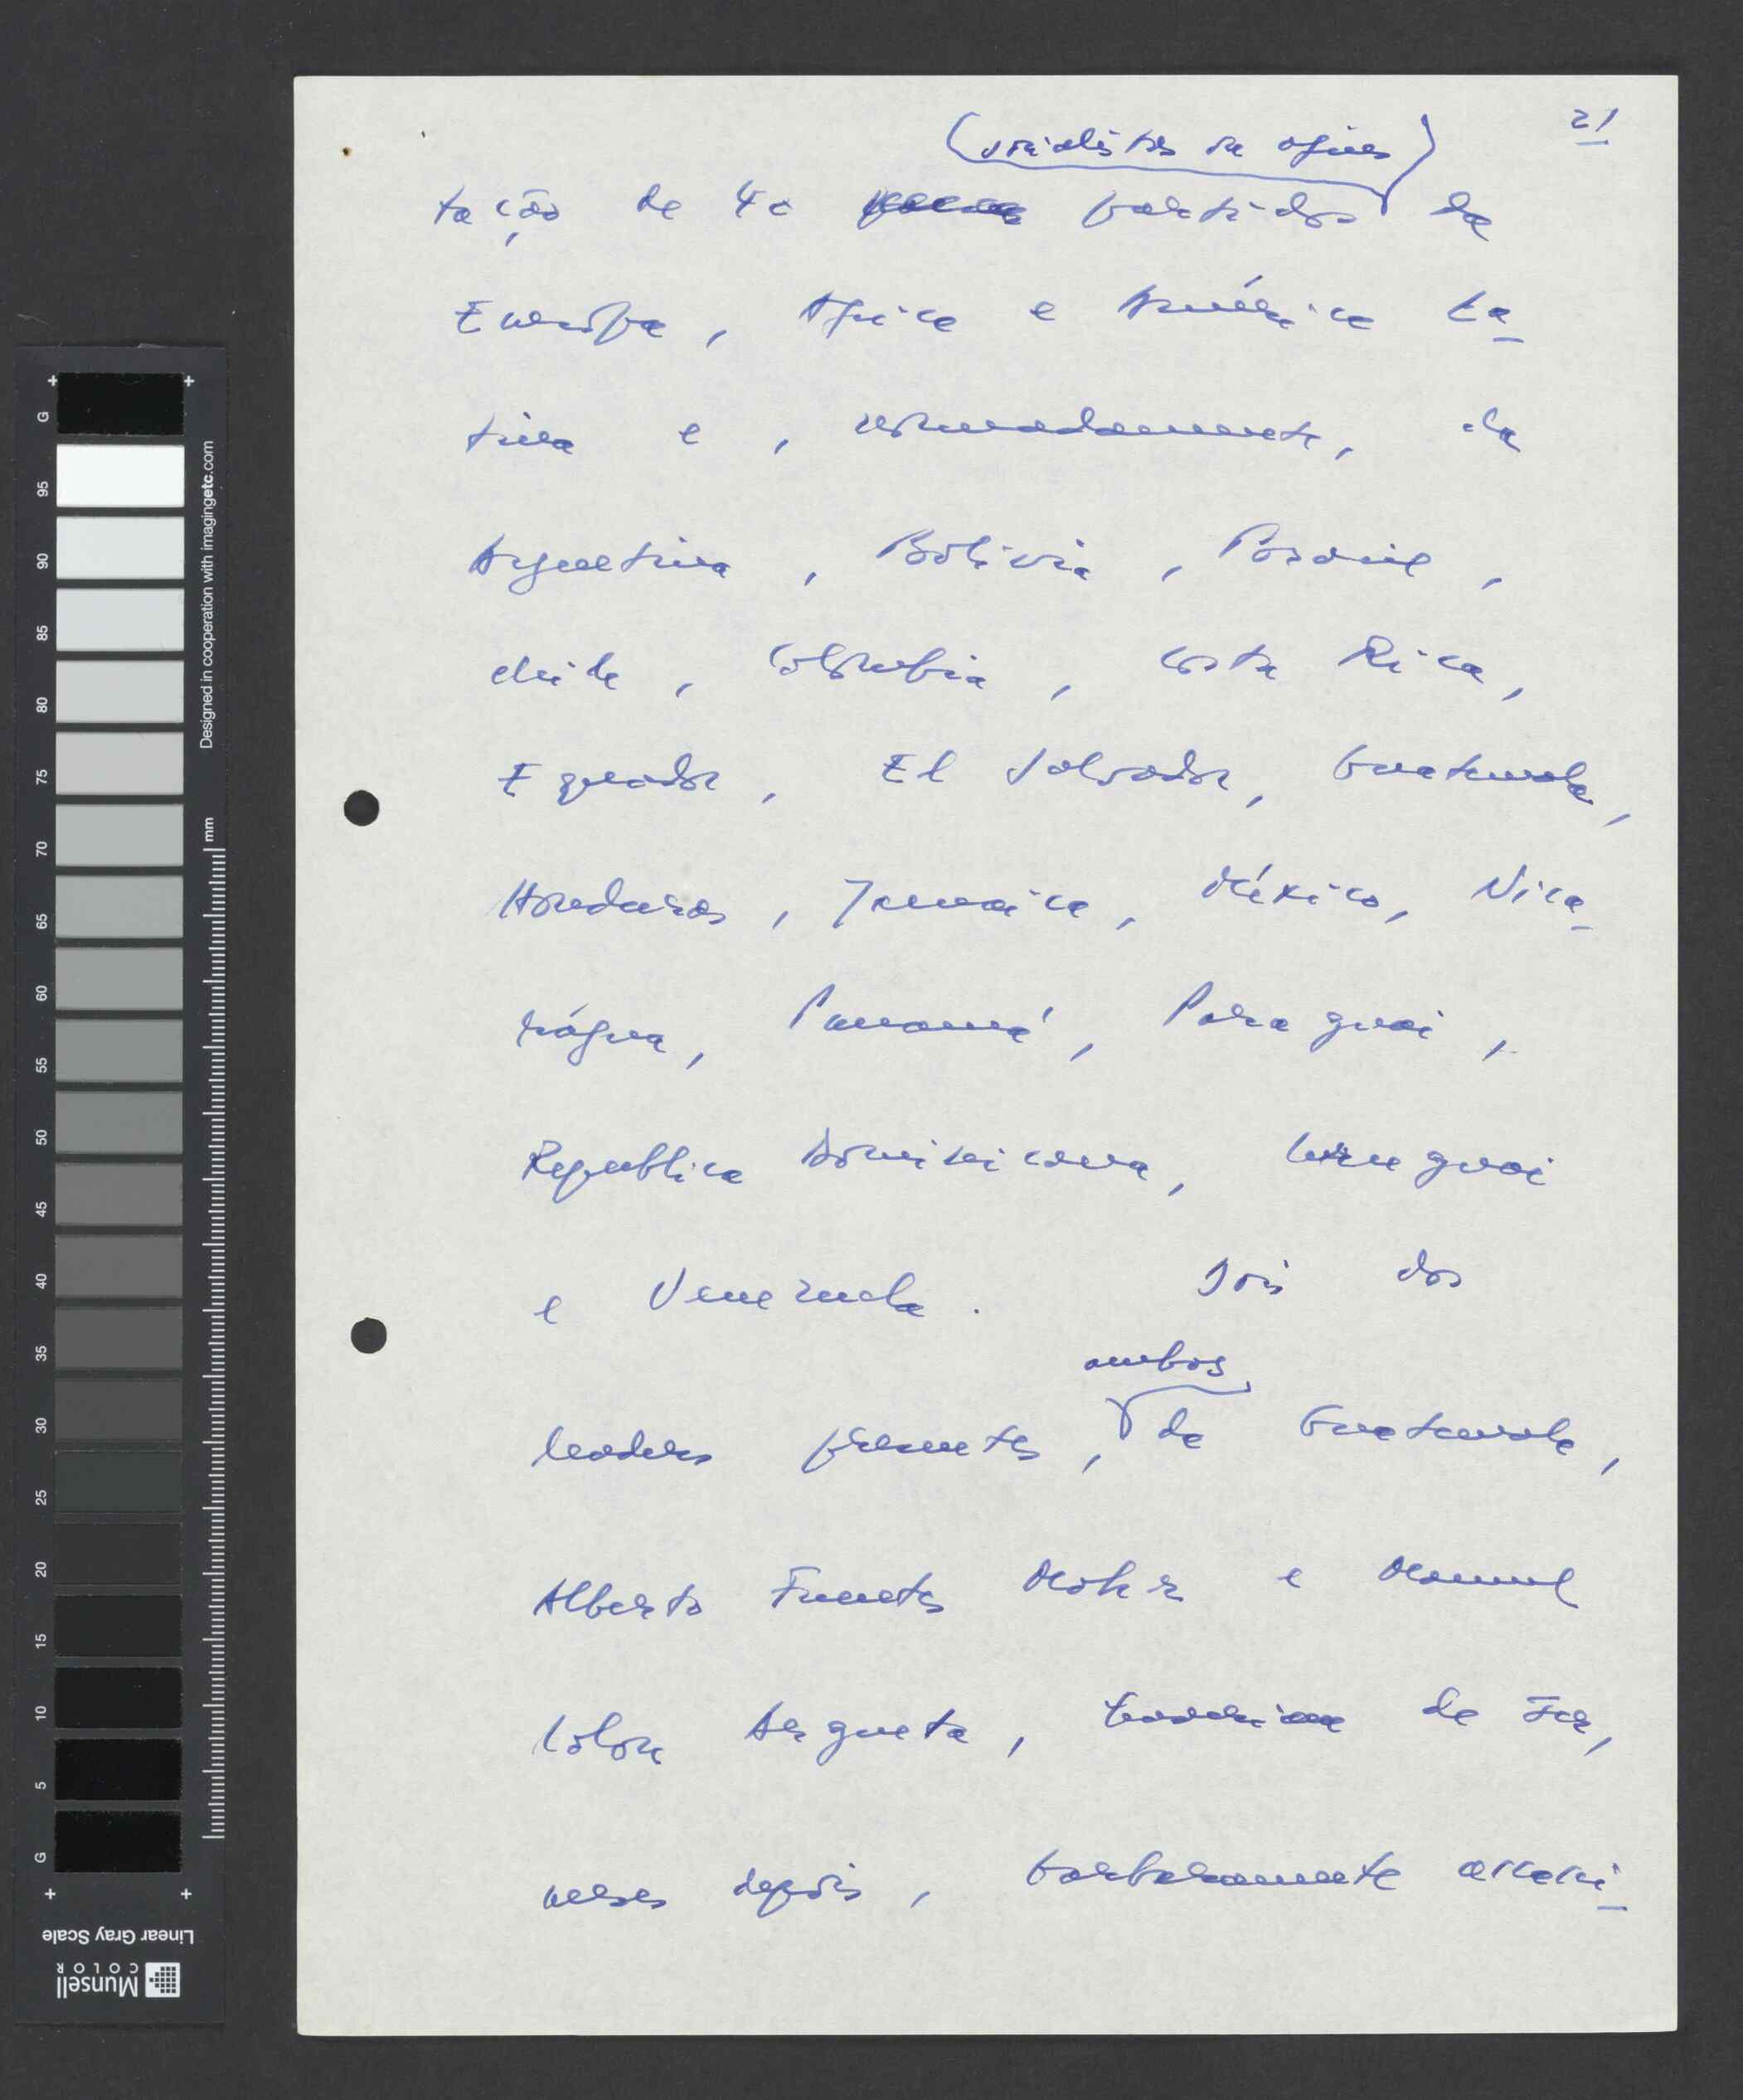 21
(socialistas ou afins)
tação de 40 partidos da
Europa, Africa e América La-
tina e, nomeadamente, da
Argentina, Bolivia, Brasil,
Chile, Colombia, Costa Rica,
Equador, El Salvador, Guatemala,
Honduras, Jamaica, México, Nica-
rágua, Panamá, Paraguai,
Republica Dominicana, Uruguai
e Venezuela. Dois dos
ambos
leaders presentes, da Guatemala,
Alberto Fuentes Mohr e Manuel
Colon Argueta, de ser,
meses depois, barbaramente assassi-
G 95 90 85 80 75 70 65 60 55 50 45 40 35 30 25 20 15 10 5 G
Designed in cooperation with imagingetc.com
mm
Linear Gray Scale
Munsell
COLOR